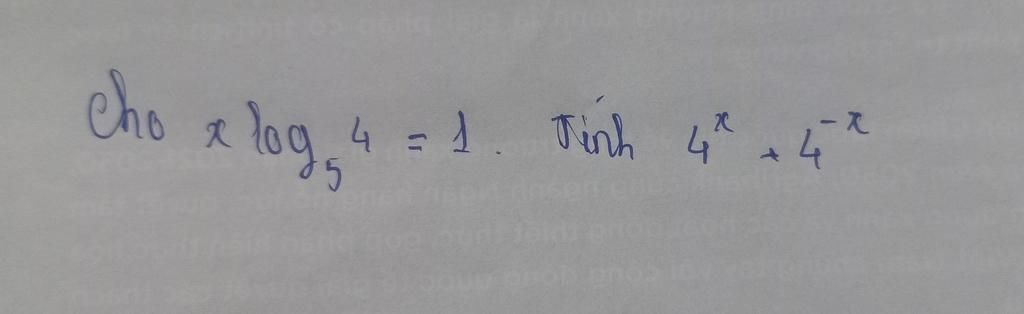 Cho x log₅ 4 = 1. Tính 4ˣ + 4⁻ˣ